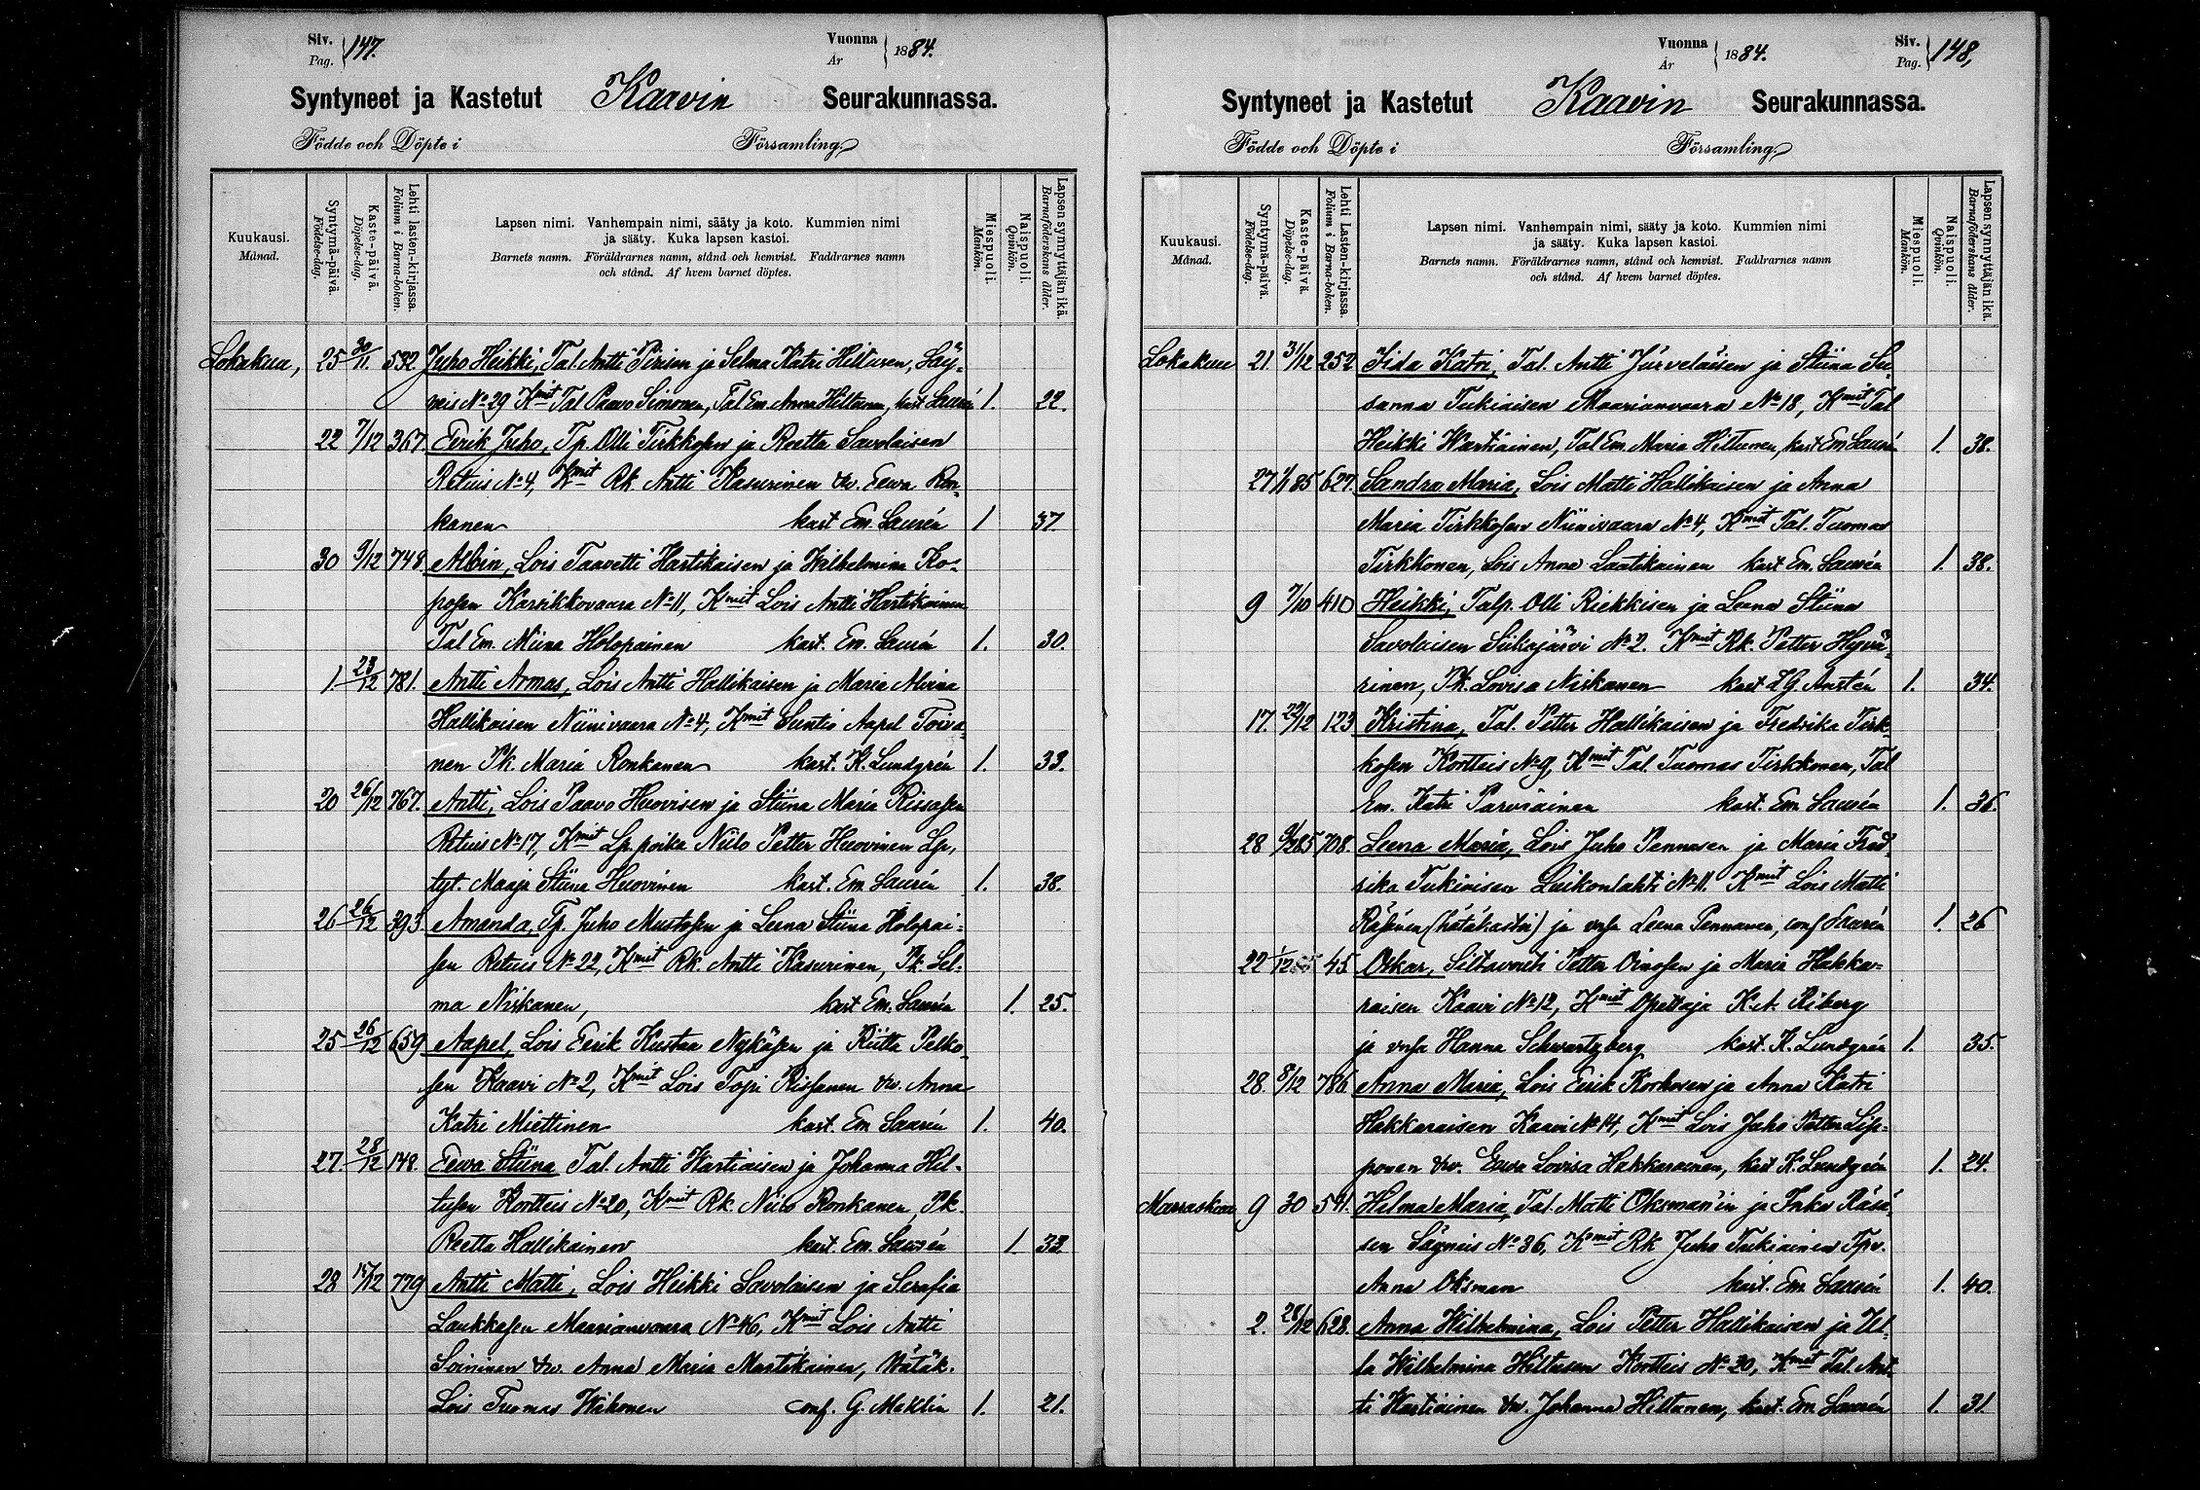 Siv. Pag. 147. Vuonna År 1884.
Syntyneet ja Kastetut Kaavin Seurakunnassa.
Födde och Döpte i Församling.
Kuukausi. Månad. Syntymä-päivä. Födelse-dag. Kaste-päivä. Döpelse-dag. Lehti lasten-kirjassa. Folium i Barna-boken.
Lapsen nimi. Vanhempain nimi, sääty ja koto. Kummien nimi
ja sääty. Kuka lapsen kastoi.
Barnets namn. Föräldrarnes namn, stånd och hemvist. Faddrarnes namn
och stånd. Af hvem barnet döptes.
Miespuoli. Mankön. Naispuoli. Qvinkön. Lapsen synnyttäjän ikä. Barnaföderskans ålder.
Lokakuu, 25 30/11. 532. Juho Heikki, Tal. Antti Pirisen ja Selma Katri Hiltusen, Säy-
neis No 29 Kmit Tal Paavo Simonen, Tal Em. Anna Hiltunen, kast Laurén 1. 22.
22 7/12 367. Eerik Juho, Tp. Olli Tirkkosen ja Reetta Savolaisen
Retuis No 4, Kmit Rk. Antti Kasurinen vv. Eewa Ron-
kanen kast Em. Laurén 1 37.
30 9/12 748. Albin, Lois Taavetti Hartikaisen ja Wilhelmina Ko-
posen Karsikkovaara No 11, Kmit Lois Antti Hartikainen
Tal Em. Miina Holopainen kast. Em. Laurén 1. 30.
1. 23/12 781. Antti Armas, Lois Antti Hallikaisen ja Maria Alvina
Hallikaisen Niinivaara No 4, Kmit Suntio Aapel Toiva-
nen Pk. Maria Ronkanen kast. K. Lundgrén 1. 33.
20 26/12 767. Antti, Lois Paavo Huovisen ja Stiina Maria Rissasen
Retuis No 17, Kmit Lp. poika Niilo Petter Huovinen Lp,
tyt. Maaja Stiina Huovinen kast. Em. Laurén 1. 38.
26 26/12 393. Amanda, Tp. Juho Mustosen ja Leena Stiina Holopai-
sen Retuis No 22, Kmit Rk. Antti Kasurinen, Pk. Sel-
ma Niskanen, kast Em. Laurén 1. 25.
25 26/12 659 Aapel, Lois Eerik Kustaa Nykäsen ja Riitta Pelko-
sen Kaavi No 2, Kmit Lois Topi Rissanen vv. Anna
Katri Miettinen kast. Em Laurén 1. 40.
27 28/12 148. Eewa Stiina Tal. Antti Wartiaisen ja Johanna Hil-
tusen Kortteis No 20, Kmit Rk. Niilo Ronkanen, Pk.
Reetta Hallikainen kast. Em. Laurén 1 33.
28 15/12 779 Antti Matti, Lois Heikki Savolaisen ja Serafia
Laukkasen Maarianvaara No 46, Kmit Lois Antti
Soininen vv. Anna Maria Martikainen, Hätäk.
Lois Tuomas Wihonen conf. G. Meklin 1. 21.
Vuonna År 1884. Siv. Pag. 148,
Syntyneet ja Kastetut Kaavin Seurakunnassa.
Födde och Döpte i Församling.
Kuukausi. Månad. Syntymä-päivä. Födelse-dag. Kaste-päivä. Döpelse-dag. Lehti Lasten-kirjassa. Folium i Barna-boken.
Lapsen nimi. Vanhempain nimi, sääty ja koto. Kummien nimi
ja sääty. Kuka lapsen kastoi.
Barnets namn. Föräldrarnes namn, stånd och hemvist. Faddrarnes namn
och stånd. Af hvem barnet döptes.
Miespuoli. Mankön. Naispuoli. Qvinkön. Lapsen synnyttäjän ikä. Barnaföderskans ålder.
Lokakuu 21. 31/12 252 Iida Katri, Tal. Antti Järveläisen ja Stiina Su-
sanna Tukiaisen Maarianvaara No 18, Kmit Tal
Heikki Wartiainen, Tal Em. Maria Hiltunen, kast Em Laurén 1. 38.
27 1/1 85 627. Sandra Maria, Lois Matti Hallikaisen ja Anna
Maria Tirkkosen Niinivaara No 4, Kmit Tal. Tuomas
Tirkkonen, Lois Anna Laatikainen kast Em. Laurén 1. 38.
9 7/10 410 Heikki, Talp. Olli Riekkisen ja Leena Stiina
Savolaisen Siikajärvi No 2. Kmit Rk. Petter Hyvä-
rinen, Pk. Lovisa Niskanen kast L G Anstén 1. 34.
17. 22/12 123 Kristina, Tal. Petter Hallikaisen ja Fredrika Tirk-
kosen Kortteis No 9, Kmit Tal. Tuomas Tirkkonen, Tal
Em. Katri Parviainen kast. Em. Laurén 1. 36.
28 9/2 85. 708. Leena Maria, Lois Juho Pennasen ja Maria Fred-
rika Tukiaisen Luikonlahti No 11. Kmit Lois Matti
Räsänen (hätäkastoi) ja vsa Leena Pennanen, conf Laurén 1. 26
22 1/12 85 45 Oskar, Siltavouti Petter Oinosen ja Maria Hakka-
raisen Kaavi No 12, Kmit Opettaja K. A. Riberg
ja vsa Hanna Schwartzberg kast. K. Lundgrén 1. 35.
28. 8/12 786 Anna Maria, Lois Eirik Korhosen ja Anna Katri
Hakkaraisen Kaavi No 14, Kmit Lois Juho Petter Lip-
ponen vv. Eewa Lovisa Hakkarainen, kast K. Lundgrén 1. 24.
Marraskuu 9 30 541. Hilma Maria, Tal. Matti Oksman'in ja Inka Räsä-
sen Säyneis No 36, Kmit Rk Juho Tukiainen Tpv.
Anna Oksman kast. Em. Laurén 1. 40.
2. 28/12 628. Anna Wilhelmina, Lois Petter Hallikaisen ja Ul-
la Wilhelmina Hiltusen Kortteis No 20, Kmit Tal. Ant-
ti Wartiainen vv. Johanna Hiltunen, kast. Em Laurén 1. 31.